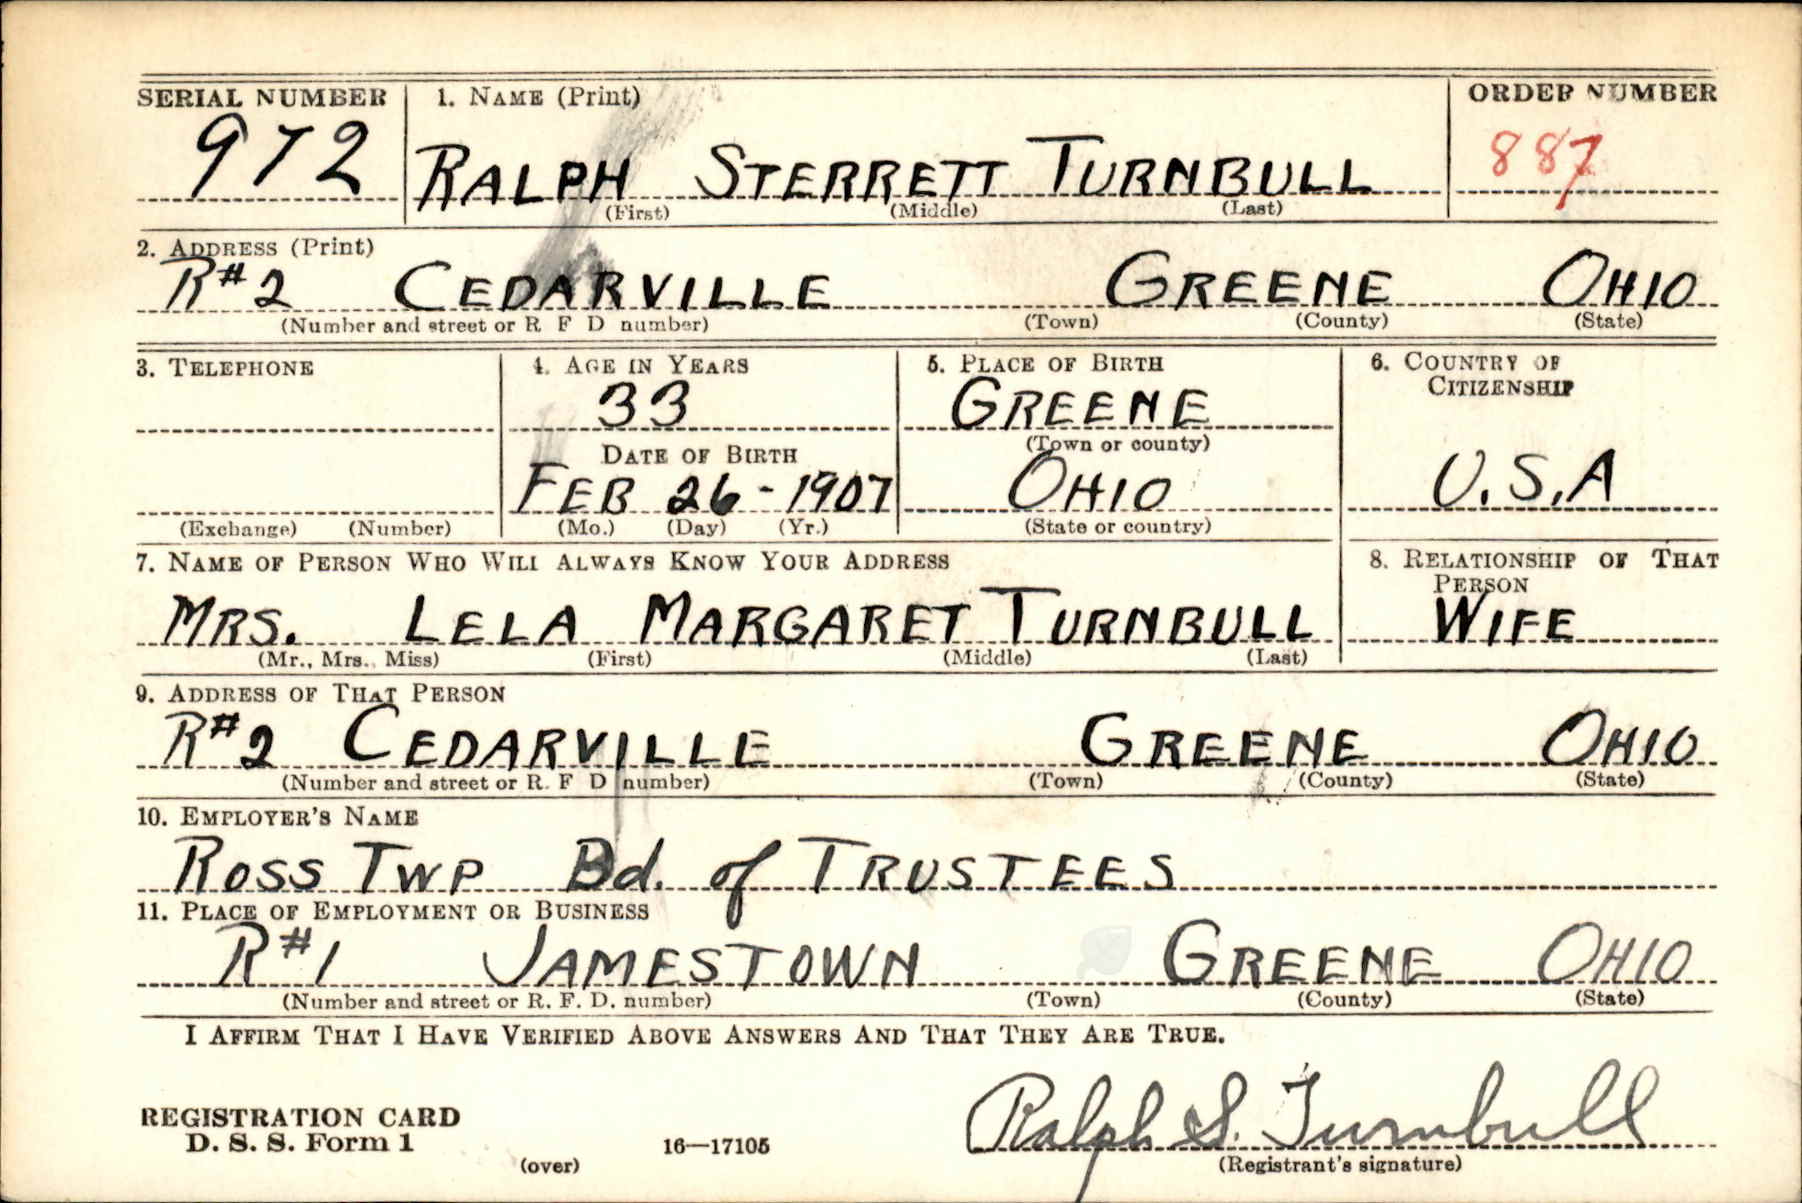 SERIAL NUMBER 1. NAME (Print) ORDER NUMBER
972 RALPH STERRETT TURNBULL 887
(First) (Middle) (Last)
2. ADDRESS (Print)
R#2 CEDARVILLE GREENE OHIO
(Number and street or R F D number) (Town) (County) (State)
3. TELEPHONE 4. AGE IN YEARS 5. PLACE OF BIRTH 6. COUNTRY OF
CITIZENSHIP
33 GREENE
(Town or county)
DATE OF BIRTH
FEB 26-1907 OHIO U.S.A
(Exchange) (Number) (Mo.) (Day) (Yr.) (State or country)
7. NAME OF PERSON WHO WILL ALWAYS KNOW YOUR ADDRESS 8. RELATIONSHIP OF THAT
PERSON
MRS. LELA MARGARET TURNBULL WIFE
(Mr., Mrs., Miss) (First) (Middle) (Last)
9. ADDRESS OF THAT PERSON
R#2 CEDARVILLE GREENE OHIO
(Number and street or R. F D number) (Town) (County) (State)
10. EMPLOYER'S NAME
ROSS TWP Bd. of TRUSTEES
11. PLACE OF EMPLOYMENT OR BUSINESS
R#1 JAMESTOWN GREENE OHIO
(Number and street or R. F. D. number) (Town) (County) (State)
I AFFIRM THAT I HAVE VERIFIED ABOVE ANSWERS AND THAT THEY ARE TRUE.
Ralph S. Turnbull
REGISTRATION CARD
D. S. S. Form 1 16—17105
(over) (Registrant's signature)